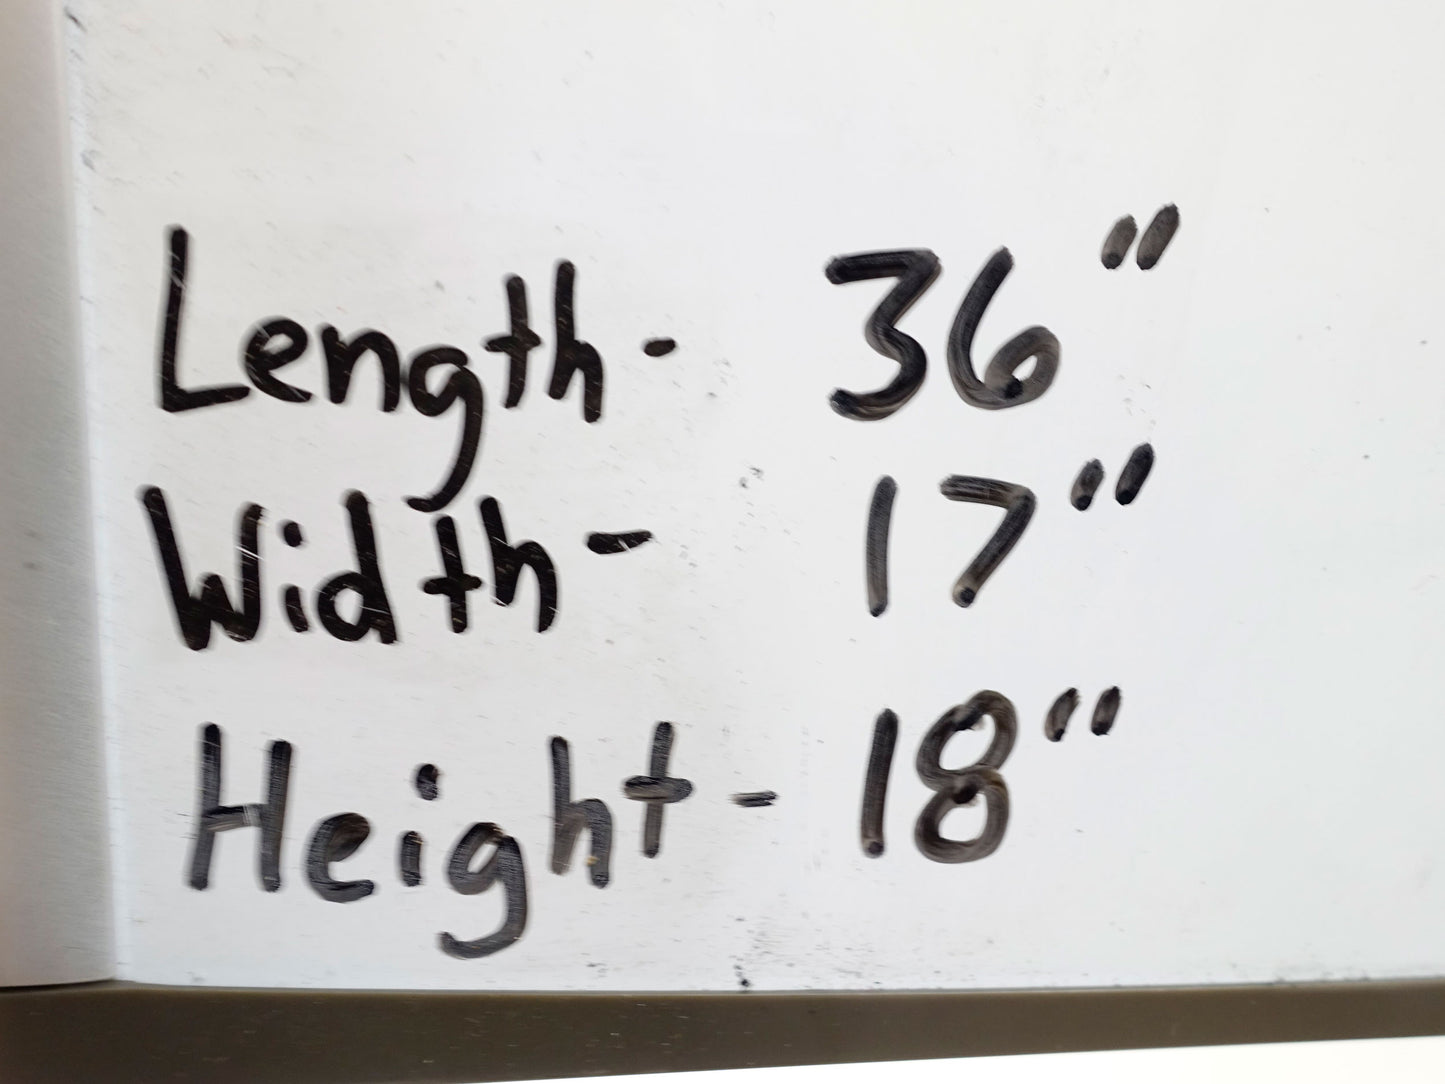 Length - 36"
Width - 17"
Height - 18"